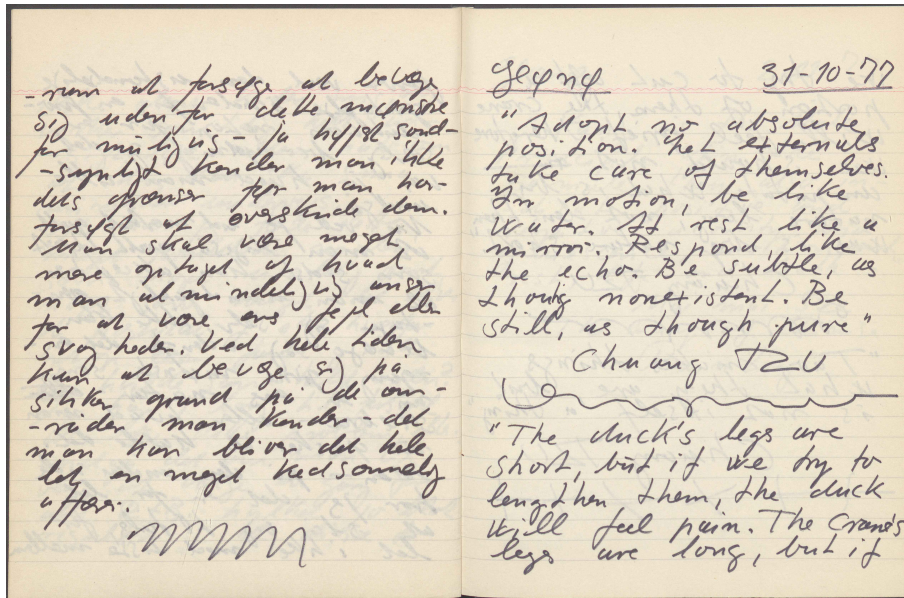 -rum at forsøge at bevæge
sig uden for dette mønstre
for muligvis - ja højst sand-
-synligt kender man ikke
dets grænser før man har
forsøgt at overskride dem.
Man skal være meget
mere optaget af hvad
man almindeligvis anser
for at være ens fejl eller
svagheder. Ved hele tiden
kun at bevæge sig på
sikker grund på de om-
-råder man kender - det
man kan bliver det hele
let en meget kedsommelig
affære.
31-10-77
"Adopt no absolute
position. Let externals
take care of themselves.
In motion, be like
water. At rest, like a
mirror. Respond, like
the echo. Be subtle, as
thoug nonexistent. Be
still, as though pure"
Chuang TZU
"The duck's legs are
short, but if we try to
lengthen them, the duck
will feel pain. The Crane's
legs are long, but if